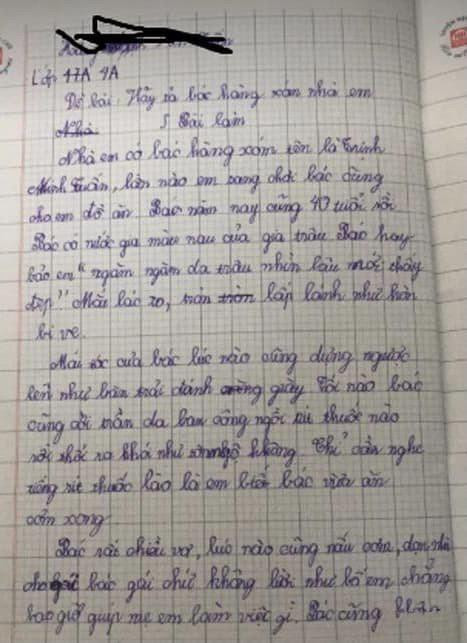 Lớp 17A 4A
Đề bài: Hãy tả bác hàng xóm nhà em
Nhà Bài làm
Nhà em có bác hàng xóm tên là Trịnh
Minh Tuấn, lần nào em sang chơi bác cũng
cho em đồ ăn. Bác năm nay cũng 40 tuổi rồi
Bác có nước gia màu nau của gia trâu. Bác hay
bảo em "ngăm ngăm da trâu nhìn lâu mới thấy
đẹp" Mắt bác to, tròn lấp lánh như hòn
bi ve.
Mái tóc của bác lúc nào cũng dựng ngược
lên như bàn trải đánh giầy. Tối nào bác
cũng cởi trần da ban công ngồi rít thuốc nào
rồi thổi ra khói như không. Chỉ cần nghe
tiếng rít thuốc lào là em biết bác vừa ăn
cơm xong.
Bác rất chiều vợ, lúc nào cũng nấu cơm, dọn nhà
cho bác gái chứ không lười như bố em chẳng
bao giờ giúp mẹ em làm việc gì. Bác cũng